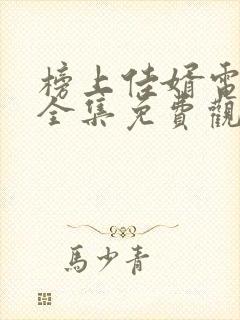 榜上佳婿電
全集免費觀
馬少青